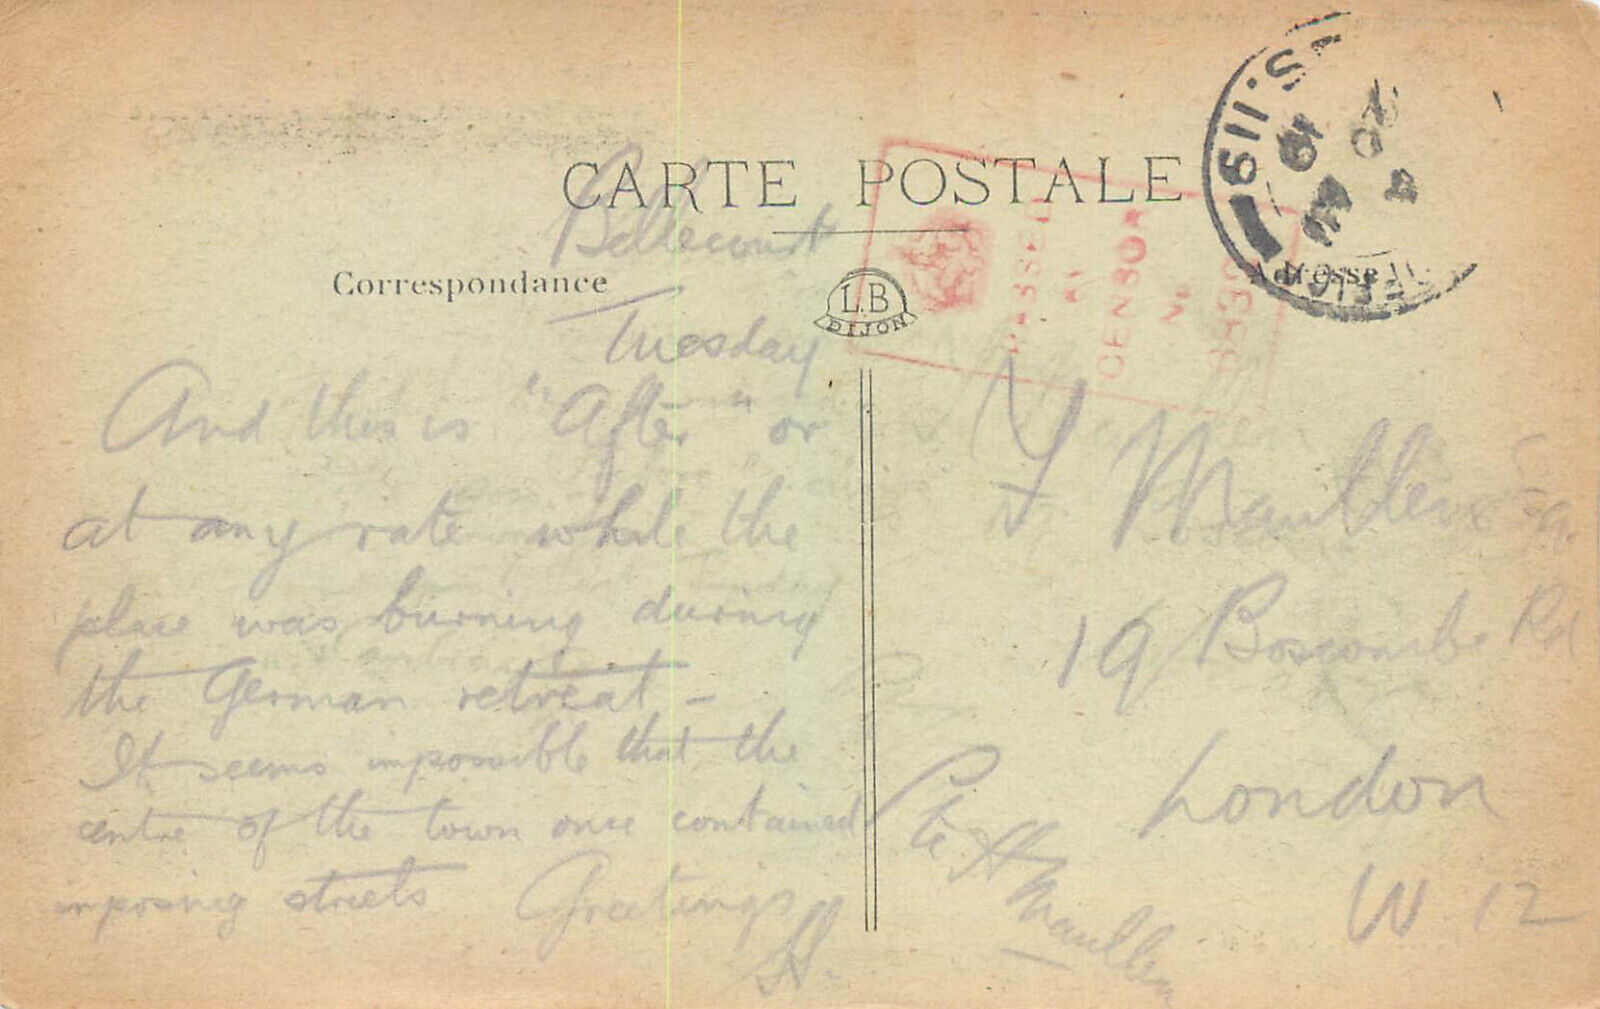 CARTE POSTALE
Correspondance
Adresse
L.B
DIJON
PASSED
BY
CENSOR
No
S.119
Bellecourt
Tuesday
And this is "After" or
at any rate while the
place was burning during
the German retreat -
It seems impossible that the
centre of the town once contained
imposing streets Greetings
H.
19 Boscombe Rd
London
W 12
Pte H